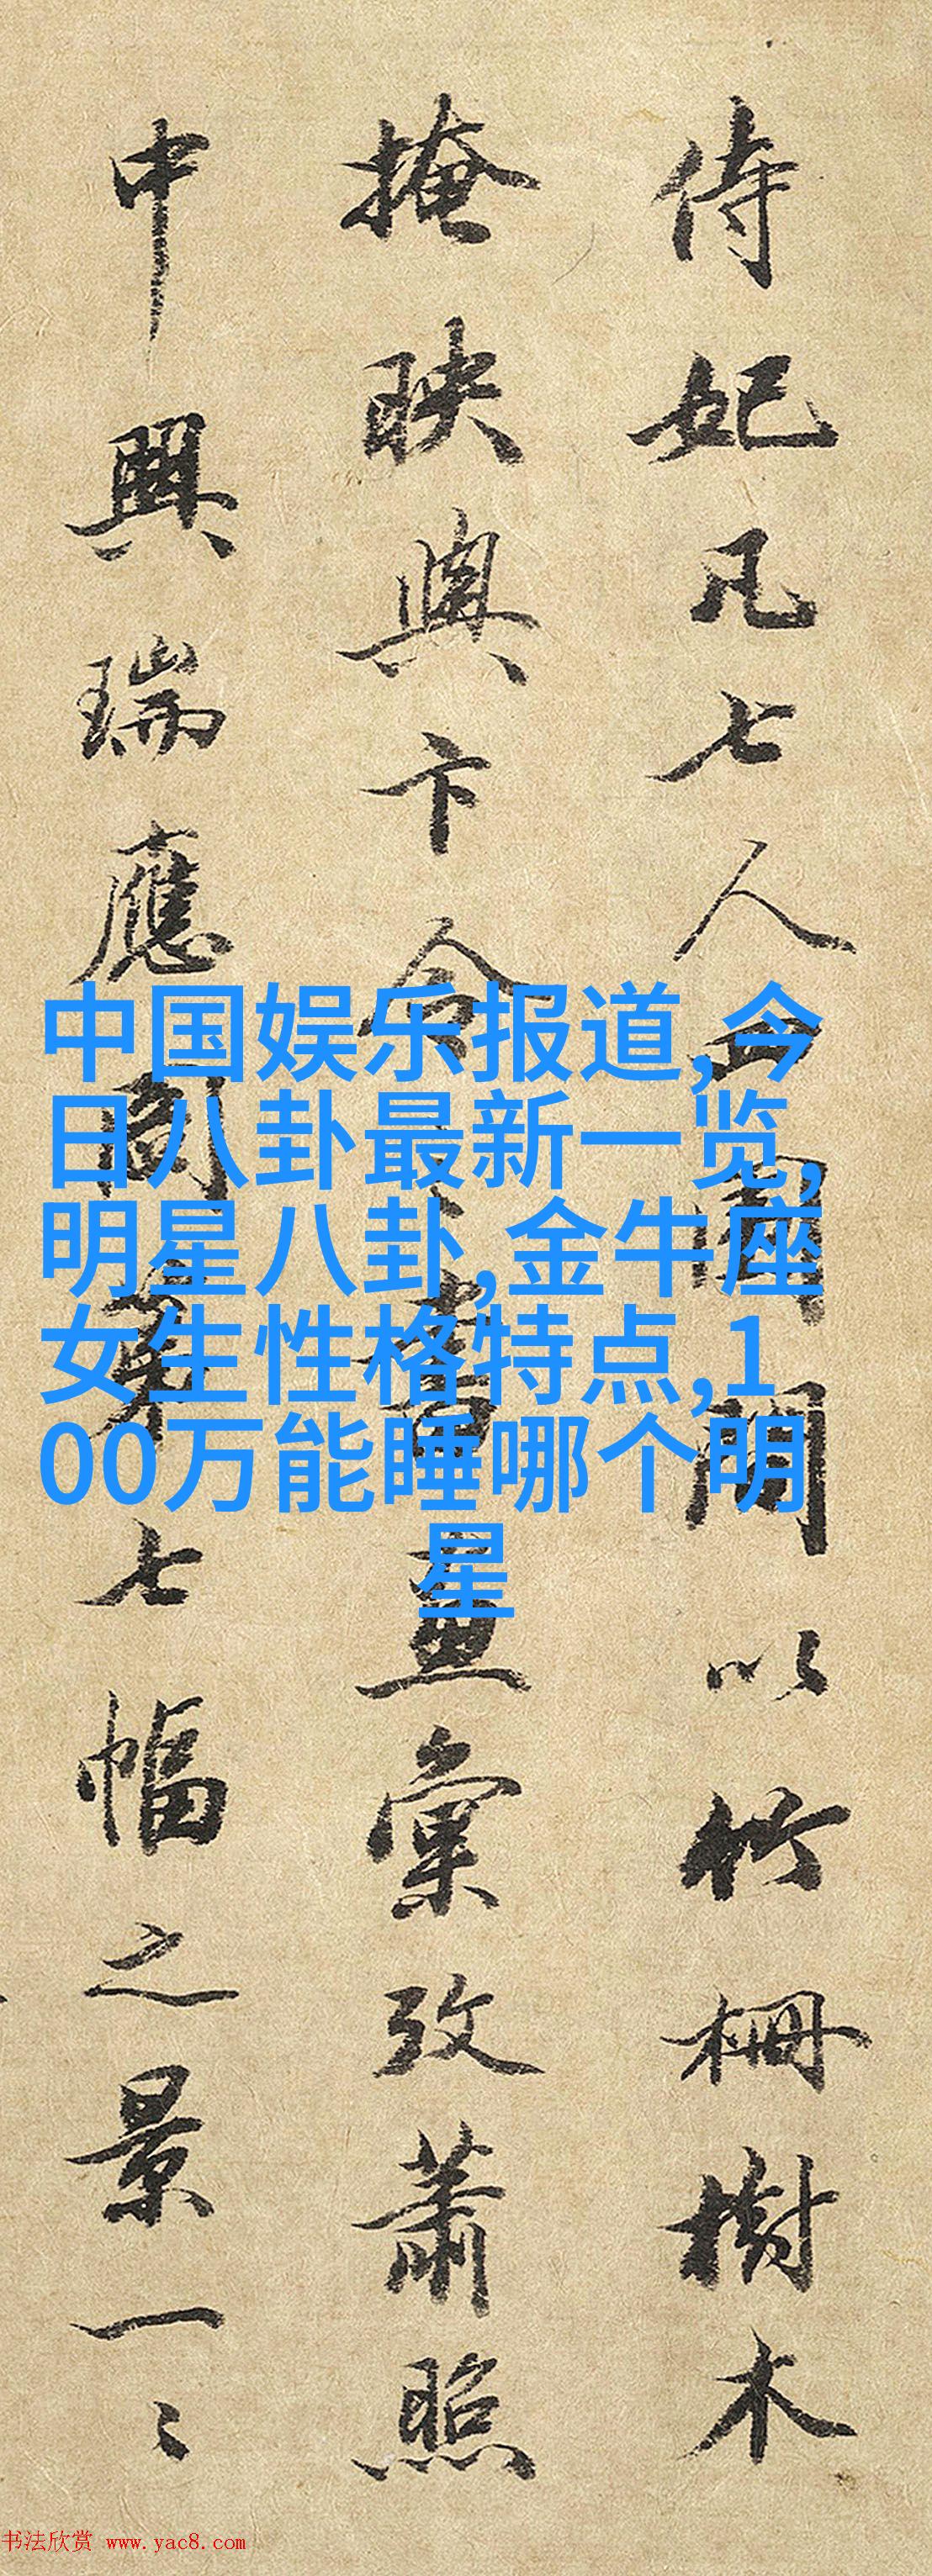 侍妃凡七人
間以竹柵樹木
掩映與卞令
畫彙攷蕭照
中興瑞應圖
七幅之景一〻
中国娱乐报道,今
日八卦最新一览,
明星八卦,金牛座
女生性格特点,1
00万能睡哪个明
星
书法欣赏 www.yac8.com